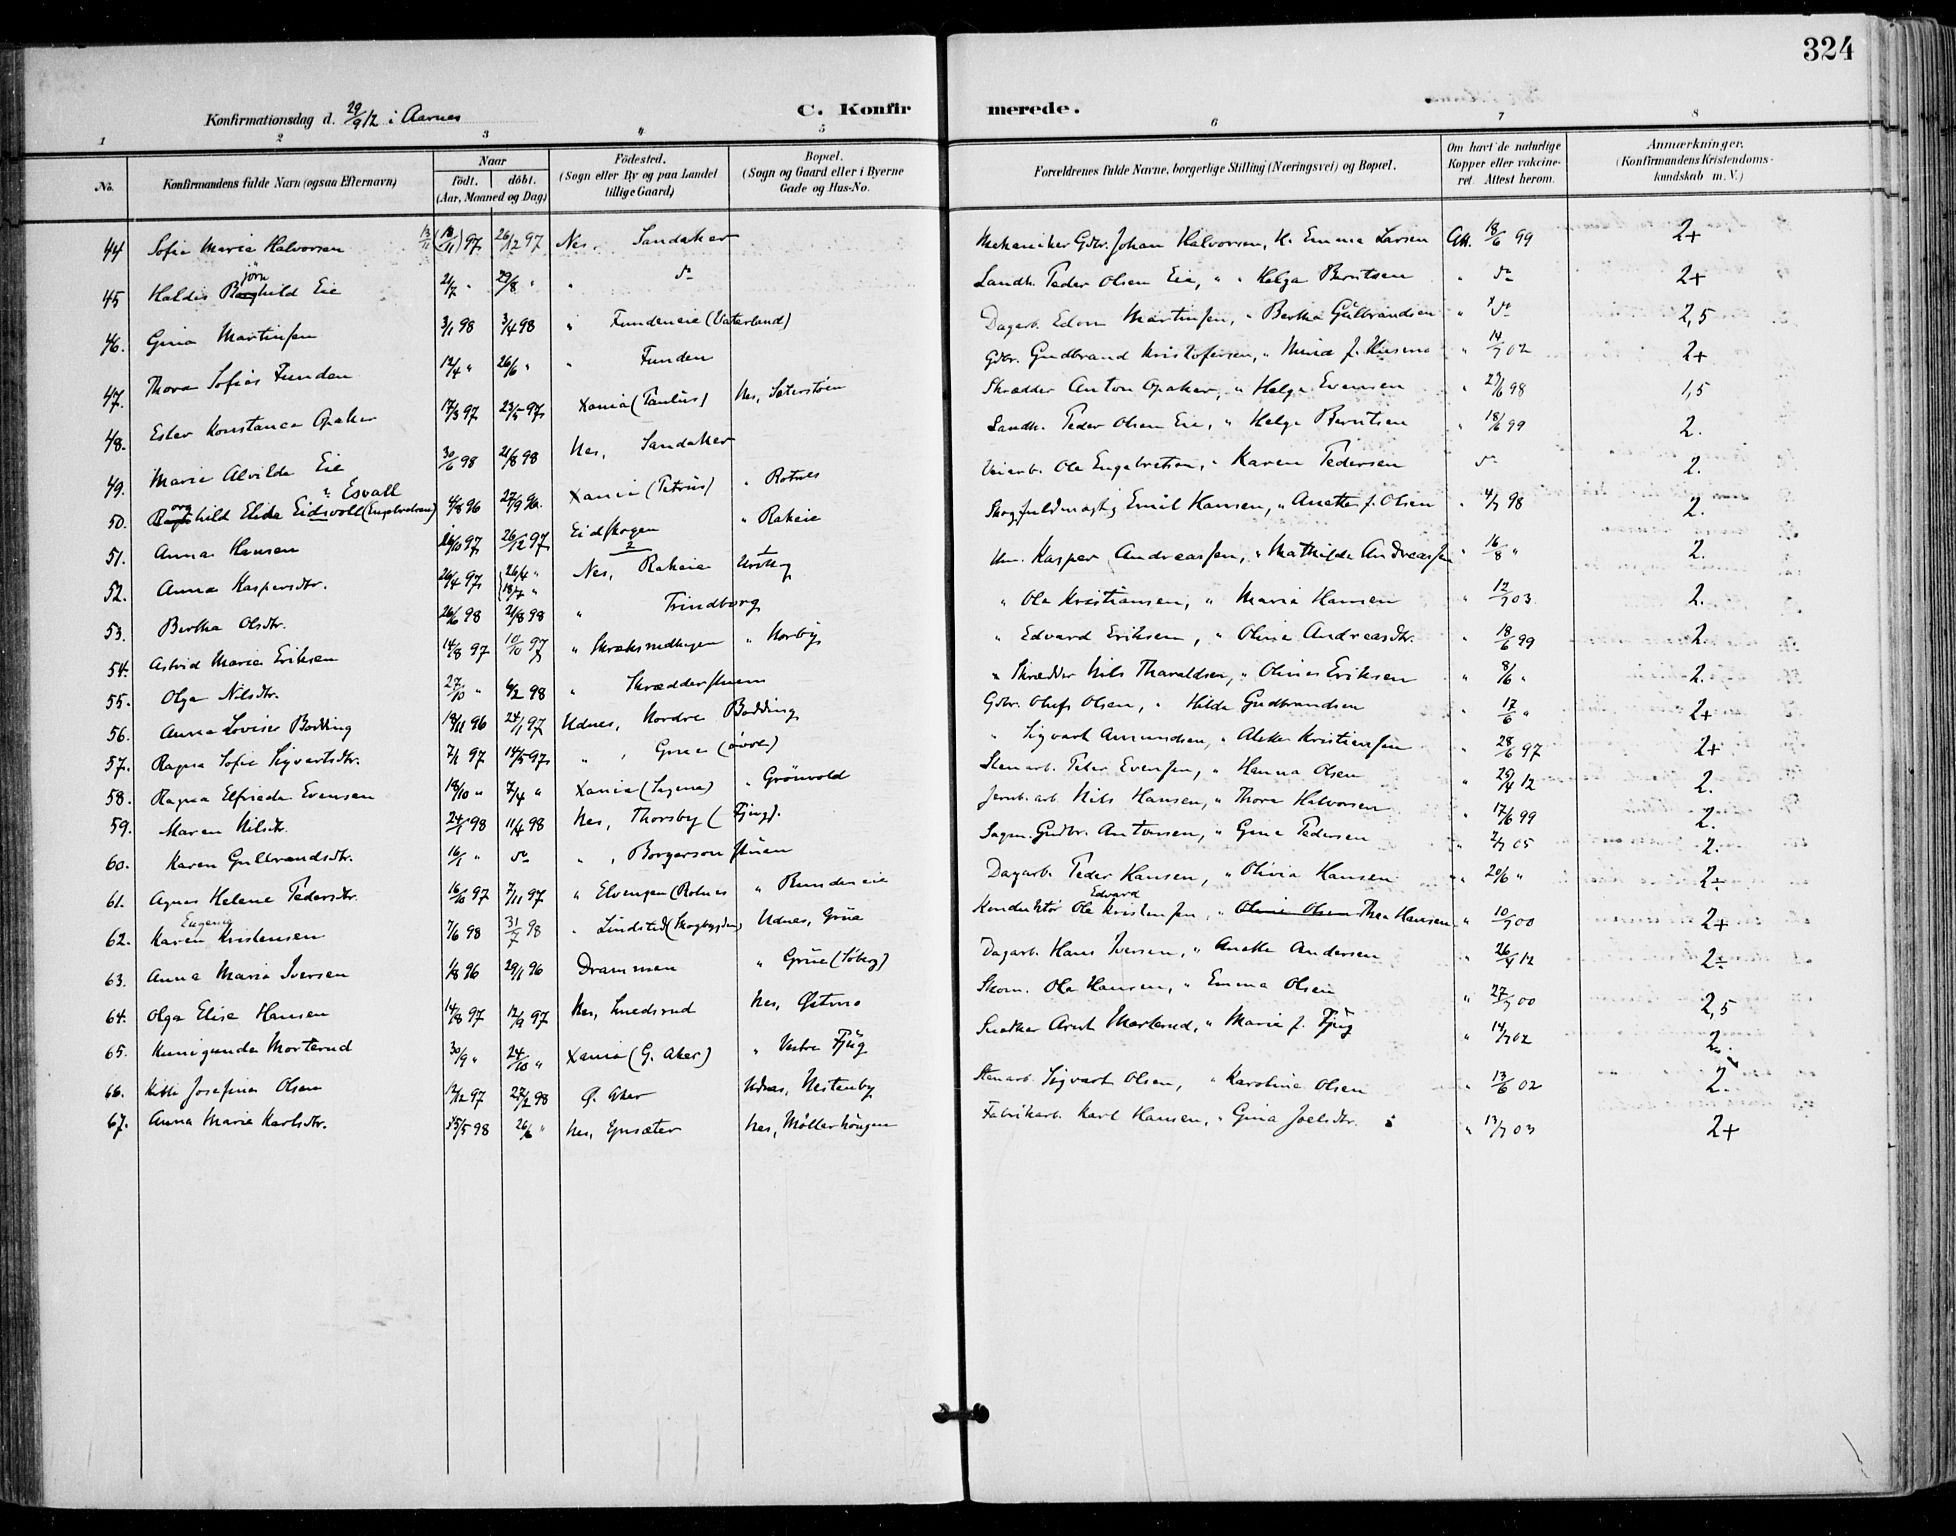 324
Konfirmationsdag d. 29/9 12 i Aarnes
C. Konfirmerede.
1 2 3 " 5 6 7 8
No. Konfirmandens fulde Navn (ogsaa Efternavn) Naar födt. döbt. (Aar, Maaned og Dag) Födested. (Sogn eller By og paa Landet tillige Gaard) Bopæl. (Sogn og Gaard eller i Byerne Gade og Hus-No. Forældrenes fulde Navne, borgerlige Stilling (Næringsvei) og Bopæl. Om havt de naturlige Kopper eller vakcineret. Attest herom. Anmærkninger. (Konfirmandens Kristendomskundskab m. V.)
44 Sofie Marie Halvorsen 13/11 97 26/12 97 Nes, Sandaker Mekaniker Gdbr. Johan Halvorsen, H. Emma Larsen 18/6 99 2+
45 Haldis Bjørnhild Eie 21/7 " 29/8 " " do Landh. Peder Olsen Eie, " " Helga Berntsen " do 2+
46. Gina Martinsen 3/1 98 3/4 98 " Fundeneie (Vaterland) Dagarb. Edon Martinsen, " Bertha Gulbrandsen " do 2,5
47. Thora Sofie Funden 12/4 " 26/6 " " Funden Gdbr. Gudbrand Kristofersen, " " 14/7 02 2+
48. Ester Konstance Opaker 17/3 97 23/5 97 Xania (Paulus) Nes, Seterstøen Skrædder Anton Opaker, " Helga Evensen " 29/6 98 1,5
49. Marie Alvilde Eie 30/6 98 21/8 98 Nes, Sandaker Landh. Peder Olsen Eie, " Helga Berntsen " 18/6 99 2.
50. Borghild Elida Eidsvoll (Engebretsen) Esvall 4/8 96 27/9 96. Xania (Petrus) " Rotnes Veiarb. Ole Engebretsen, " Karen Pedersen do 2.
51. Anna Hansen 26/10 97 26/12 97 Eidskogen " Rakeie Skogfuldmægtig Emil Hansen, " Anette f. Olsen " 4/7 98 2.
52. Anna Kaspersdtr. 26/4 97 26/4 " 18/7 " Nes, Rakeie Urskog Um. Kasper Andreassen, " Mathilde Andreassen " 16/8 " 2.
53. Bertha Olsdtr. 26/6 98 21/8 98 " Trindborg " Ole Kristiansen, " Maria Hansen " 12/7 03 2.
54. Astrid Marie Eriksen 14/8 97 10/10 97 " " Norby " Edvard Eriksen, " Oline Andreasdtr. " 18/6 99 2.
55. Olga Nilsdtr. 27/10 " 6/2 98 " Skrædderstuen " Skrædder Nils Tharaldsen, " Oline Eriksen " 8/6 " 2.
56. Anna Lovise Bodding 18/11 96 24/1 97 Udnes, Nordre Bodding Gdbr. Olufs Olsen, " Hilda Gudbrandsen " 17/6 " 2+
57. Ragna Sofie Sigvartsdtr. 7/1 97 14/5 97 " , Grue (øvre) " Sigvart Amundsen, " Kristiansen " 28/6 97 2+
58. Ragna Elfrieda Evensen 18/10 " 7/4 " Xania (Sagene) " Grönvold Stenarb. Peter Evensen, " Hanna Olsen " 25/4 12 2.
59. Maren Nilsdtr. 24/1 98 11/4 98 Nes, Thorsby (Fjug). Jernb. arb. Nils Hansen, " Thora Halvorsen " 17/6 99 2.
60. Karen Gulbrandsdtr. 16/1 " do " , Borgersonstuen Sagm. Gudbr. Antonsen, " Gina Pedersen " 2/7 05 2.
61. Agnes Helene Pedersdtr. 16/10 97 7/11 97 " Elvengen (Rotnes " Rundeneie Dagarb. Peder Hansen, " Olivia Hansen " 20/6 " 2÷
62. Karen Eugenie Kristensen 7/6 98 31/7 98 " Lindsted (Skogbygden) Udnes, Grue Konduktör Ole Edvard Kristensen, " Oline Olsen Thea Hansen " 10/7 00 2+
63. Anna Maria Iversen 1/8 96 29/1 96 Drammen " Grue (Søberg) Dagarb. Hans Iversen, " Anette Andersen " 26/4 12 2÷
64. Olga Elise Hansen 14/8 97 12/9 97 Nes, Smedsrud Nes, Østmo Skom. Ole Hansen, " Emma Olsen " 27/7 00 2,5
65. Kunigunda Morterud 30/9 " 24/10 " Xania (G. Aker) " Vestre Fjug Snedker Arnt Morterud, " Marie f. Fjug " 14/7 02 2.
66. Josefine Olsen 12/12 97 27/2 98 Ø. Aker Udnes, Nestenby Stenarb. Sigvart Olsen, " Karoline Olsen " 13/6 02 2.
67. Anna Marie Karlsdtr. 15/5 98 26/6 " Nes, Ynsæter Nes, Möllerhaugen Fabrikarb. Karl Hansen, " Gina Joelsdtr. " 13/7 03 2+